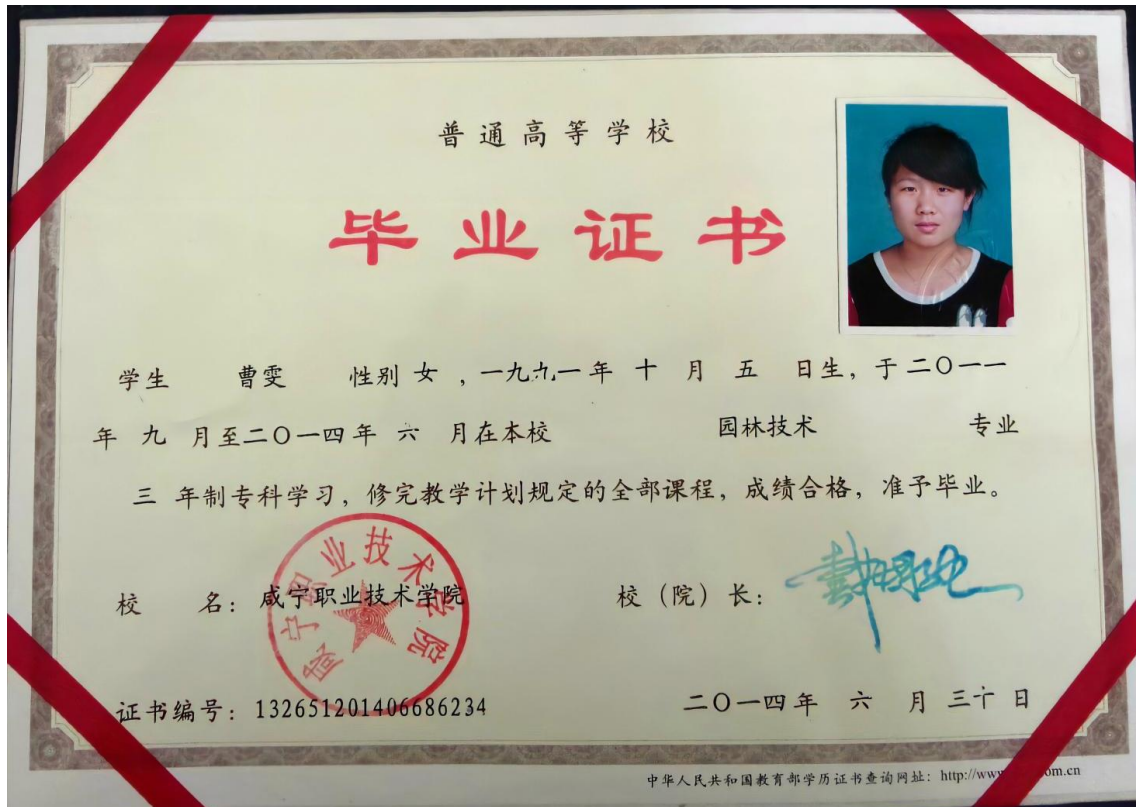 普通高等学校
毕业证书
学生 曹雯 性别 女 ，一九九一年 十 月 五 日生，于二〇一一
年 九 月至二〇一四年 六 月在本校 园林技术 专业
三 年制专科学习，修完教学计划规定的全部课程，成绩合格，准予毕业。
咸宁职业技术学院
校 名：咸宁职业技术学院 校（院）长：
证书编号：132651201406686234 二〇一四年 六 月 三十 日
中华人民共和国教育部学历证书查询网址：http://www om.cn